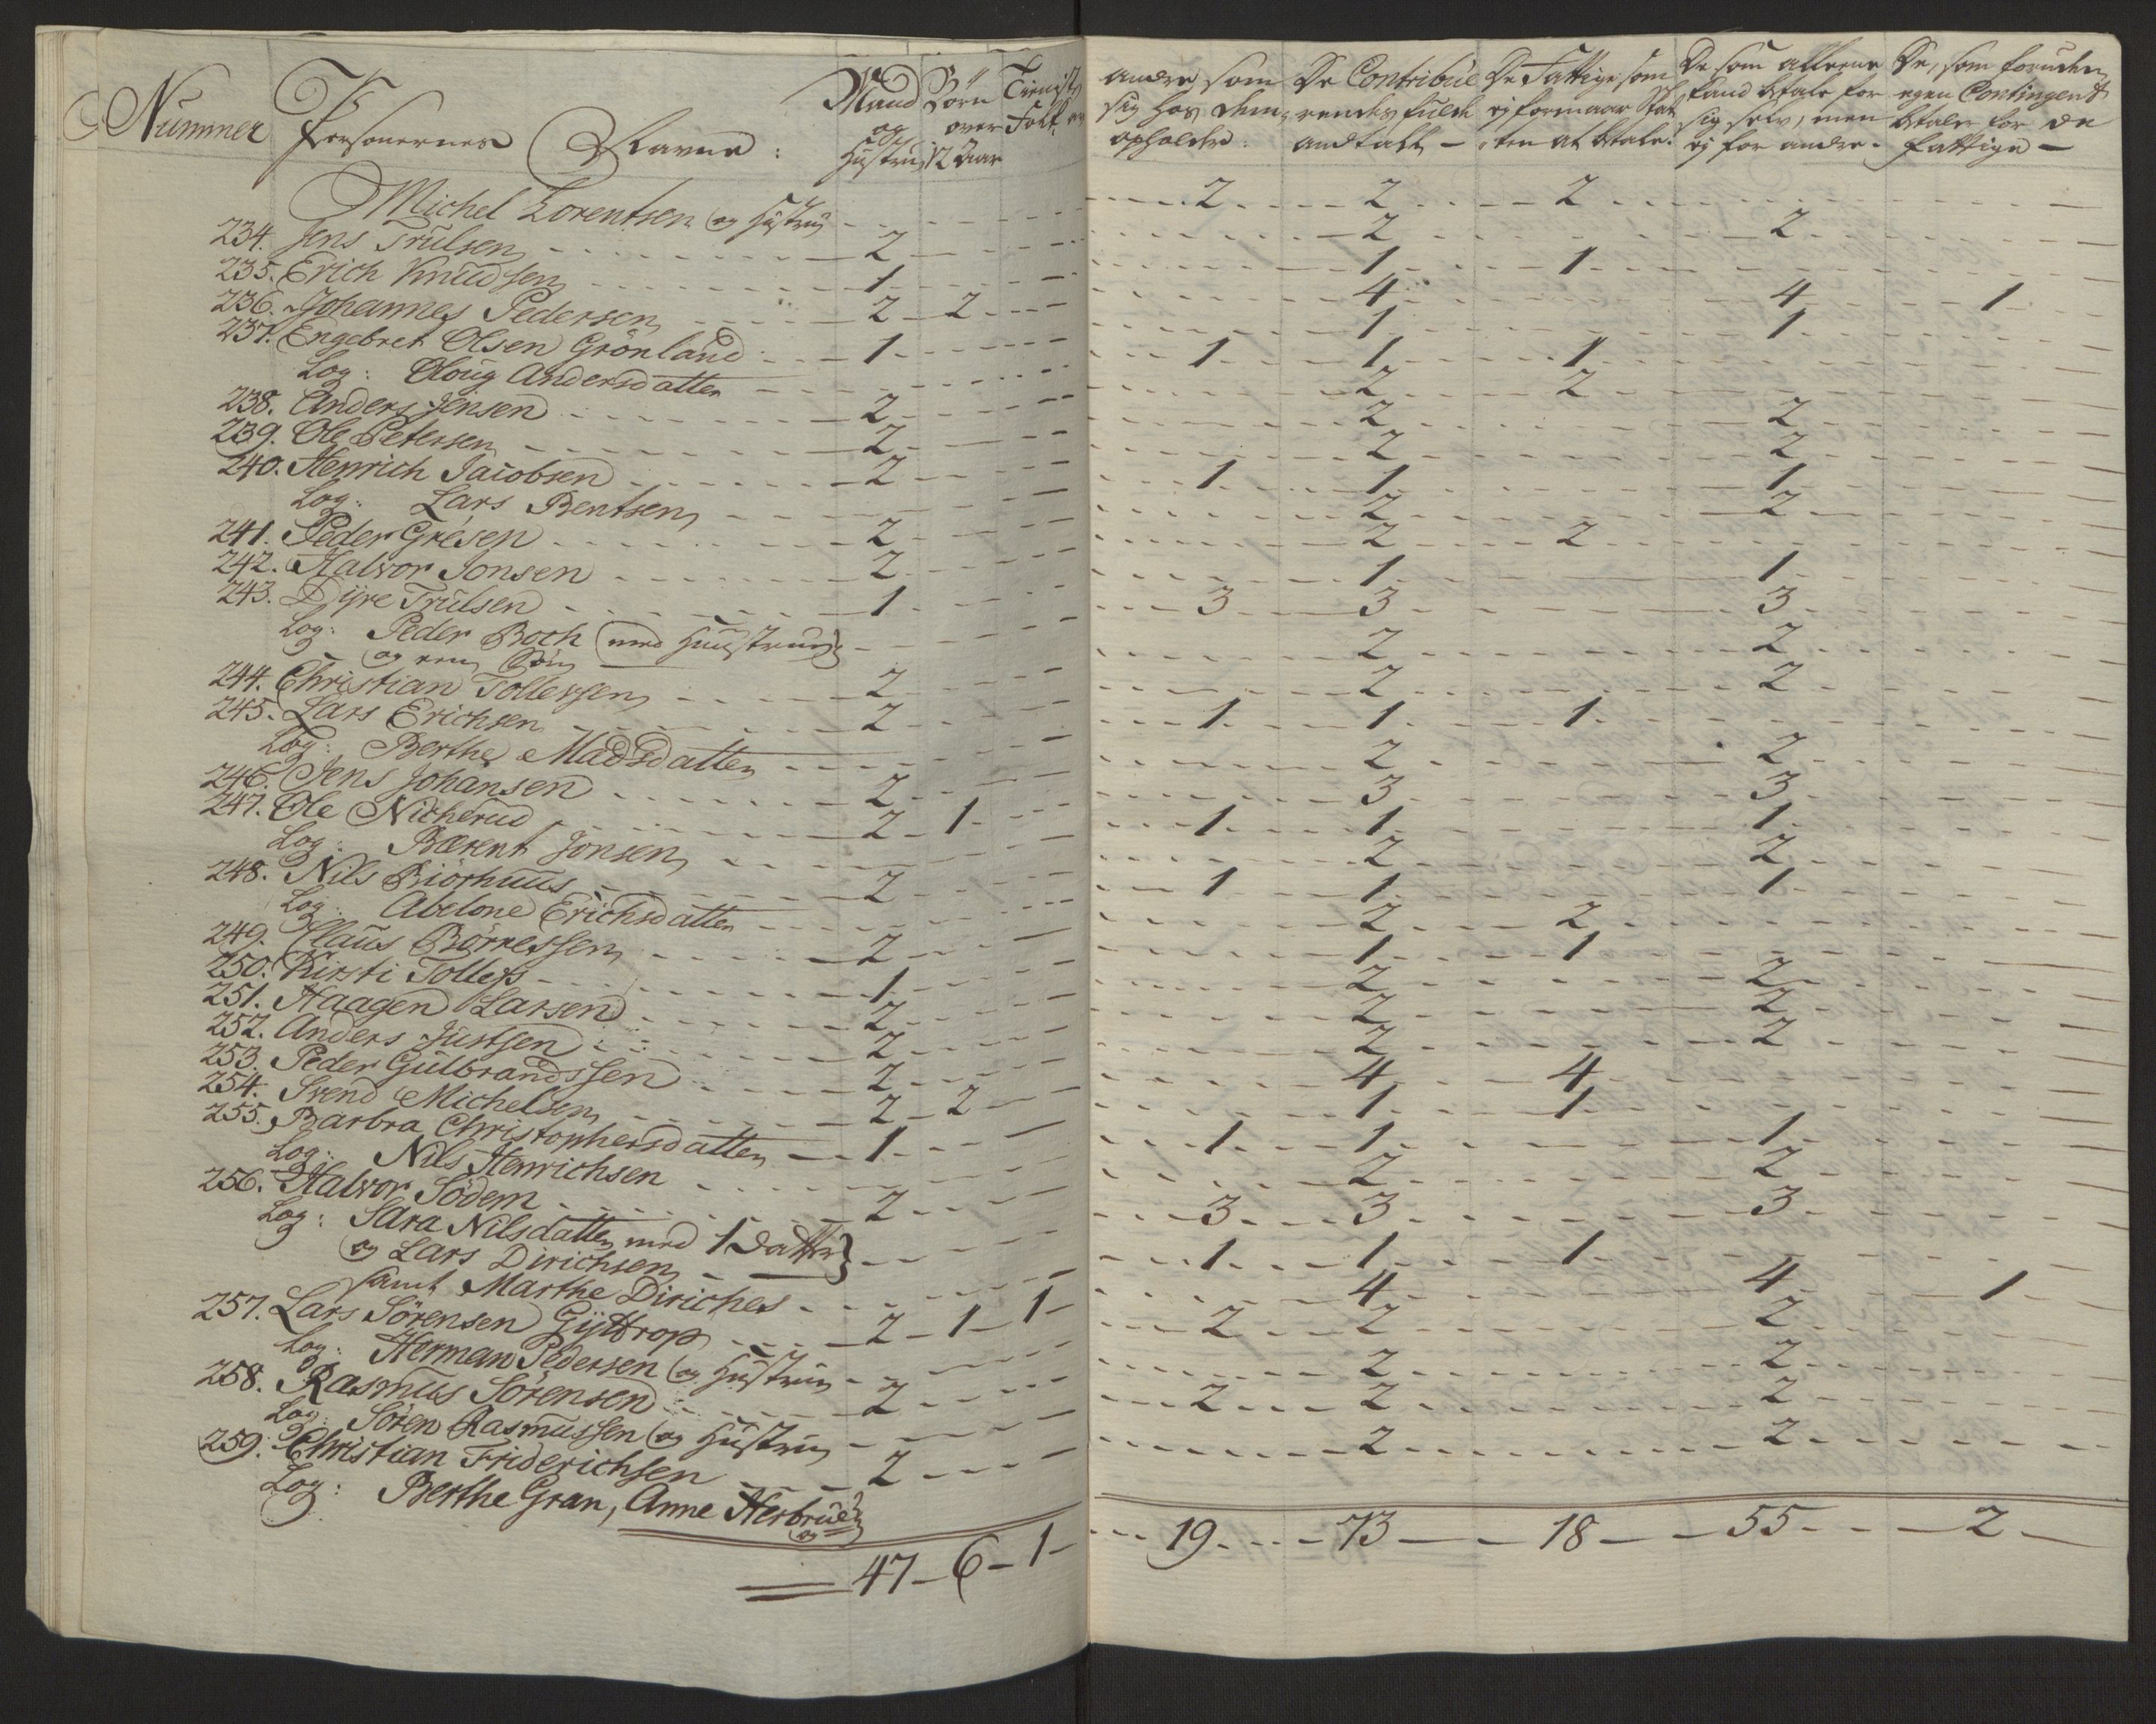 Nummer Personernes Navne: Mand og Hustru Börn over 12 Aar Tienist Folk og andre som sig hos dem opholder: De Contribuerendes fulde andtall - De Fattige som ej formaar Skatten at betale. De som alleene kand betale for sig selv, men ej for andre. De, som foruden egen Contingent betaler for de fattige -
Michel Lorentsen og Hustru - 2 2 2
234. Jens Trulsen 2 2 2
235. Erich Knudsen 1 1 1
236. Johannes Pedersen 2 2 4 4 1
237. Engebret Olsen Grönland 1 1 1
Log: Oloug Andersdatter 1 1 1
238. Anders Jensen 2 2 2
239. Ole Petersen 2 2 2
240. Henrich Jacobsen 2 2 2
Log: Lars Bentsen 1 1 1
241. Peder Gresen 2 2 2
242. Halvor Jonsen 2 2 2
243. Dyre Trulsen 1 1 1
Log: Peder Boch med Huustrue
og een Sön 3 3 3
244. Christian Tollefsen 2 2 2
245. Lars Erichsen 2 2 2
Log: Berthe Madsdatter 1 1 1
246. Jens Johansen 2 2 2
247. Ole Nicherud 2 1 3 3
Log: Bærent Jonsen 1 1 1
248. Nils Biörhuus 2 2 2
Log: Abelone Erichsdatter 1 1 1
249. Claus Börresen 2 2 2
250. Kirsti Tollefs 1 1 1
251. Haagen Larsen 2 2 2
252. Anders Justsen 2 2 2
253. Peder Gulbrandssen 2 2 2
254. Svend Michelsen 2 2 4 4
255. Barbra Christophersdatter 1 1 1
Log: Nils Henrichsen 1 1 1
256. Halvor Södem 2 2 2
Log: Sara Nilsdatter med 1 Datter
og Lars Dirichsen 3 3 3
samt Marthe Diriches 1 1 1
257. Lars Sörensen Gyttrop 2 1 1 4 4 1
Log: Herman Pedersen og Hustrue 2 2 2
258. Rasmus Sörensen 2 2 2
Log: Sören Rasmussen og Hustrue 2 2 2
259. Christian Friderichsen 2 2 2
Log: Berthe Gran, Anne Herbrue og
47 - 6 - 1 - 19 - 73 - 18 - 55 - 2